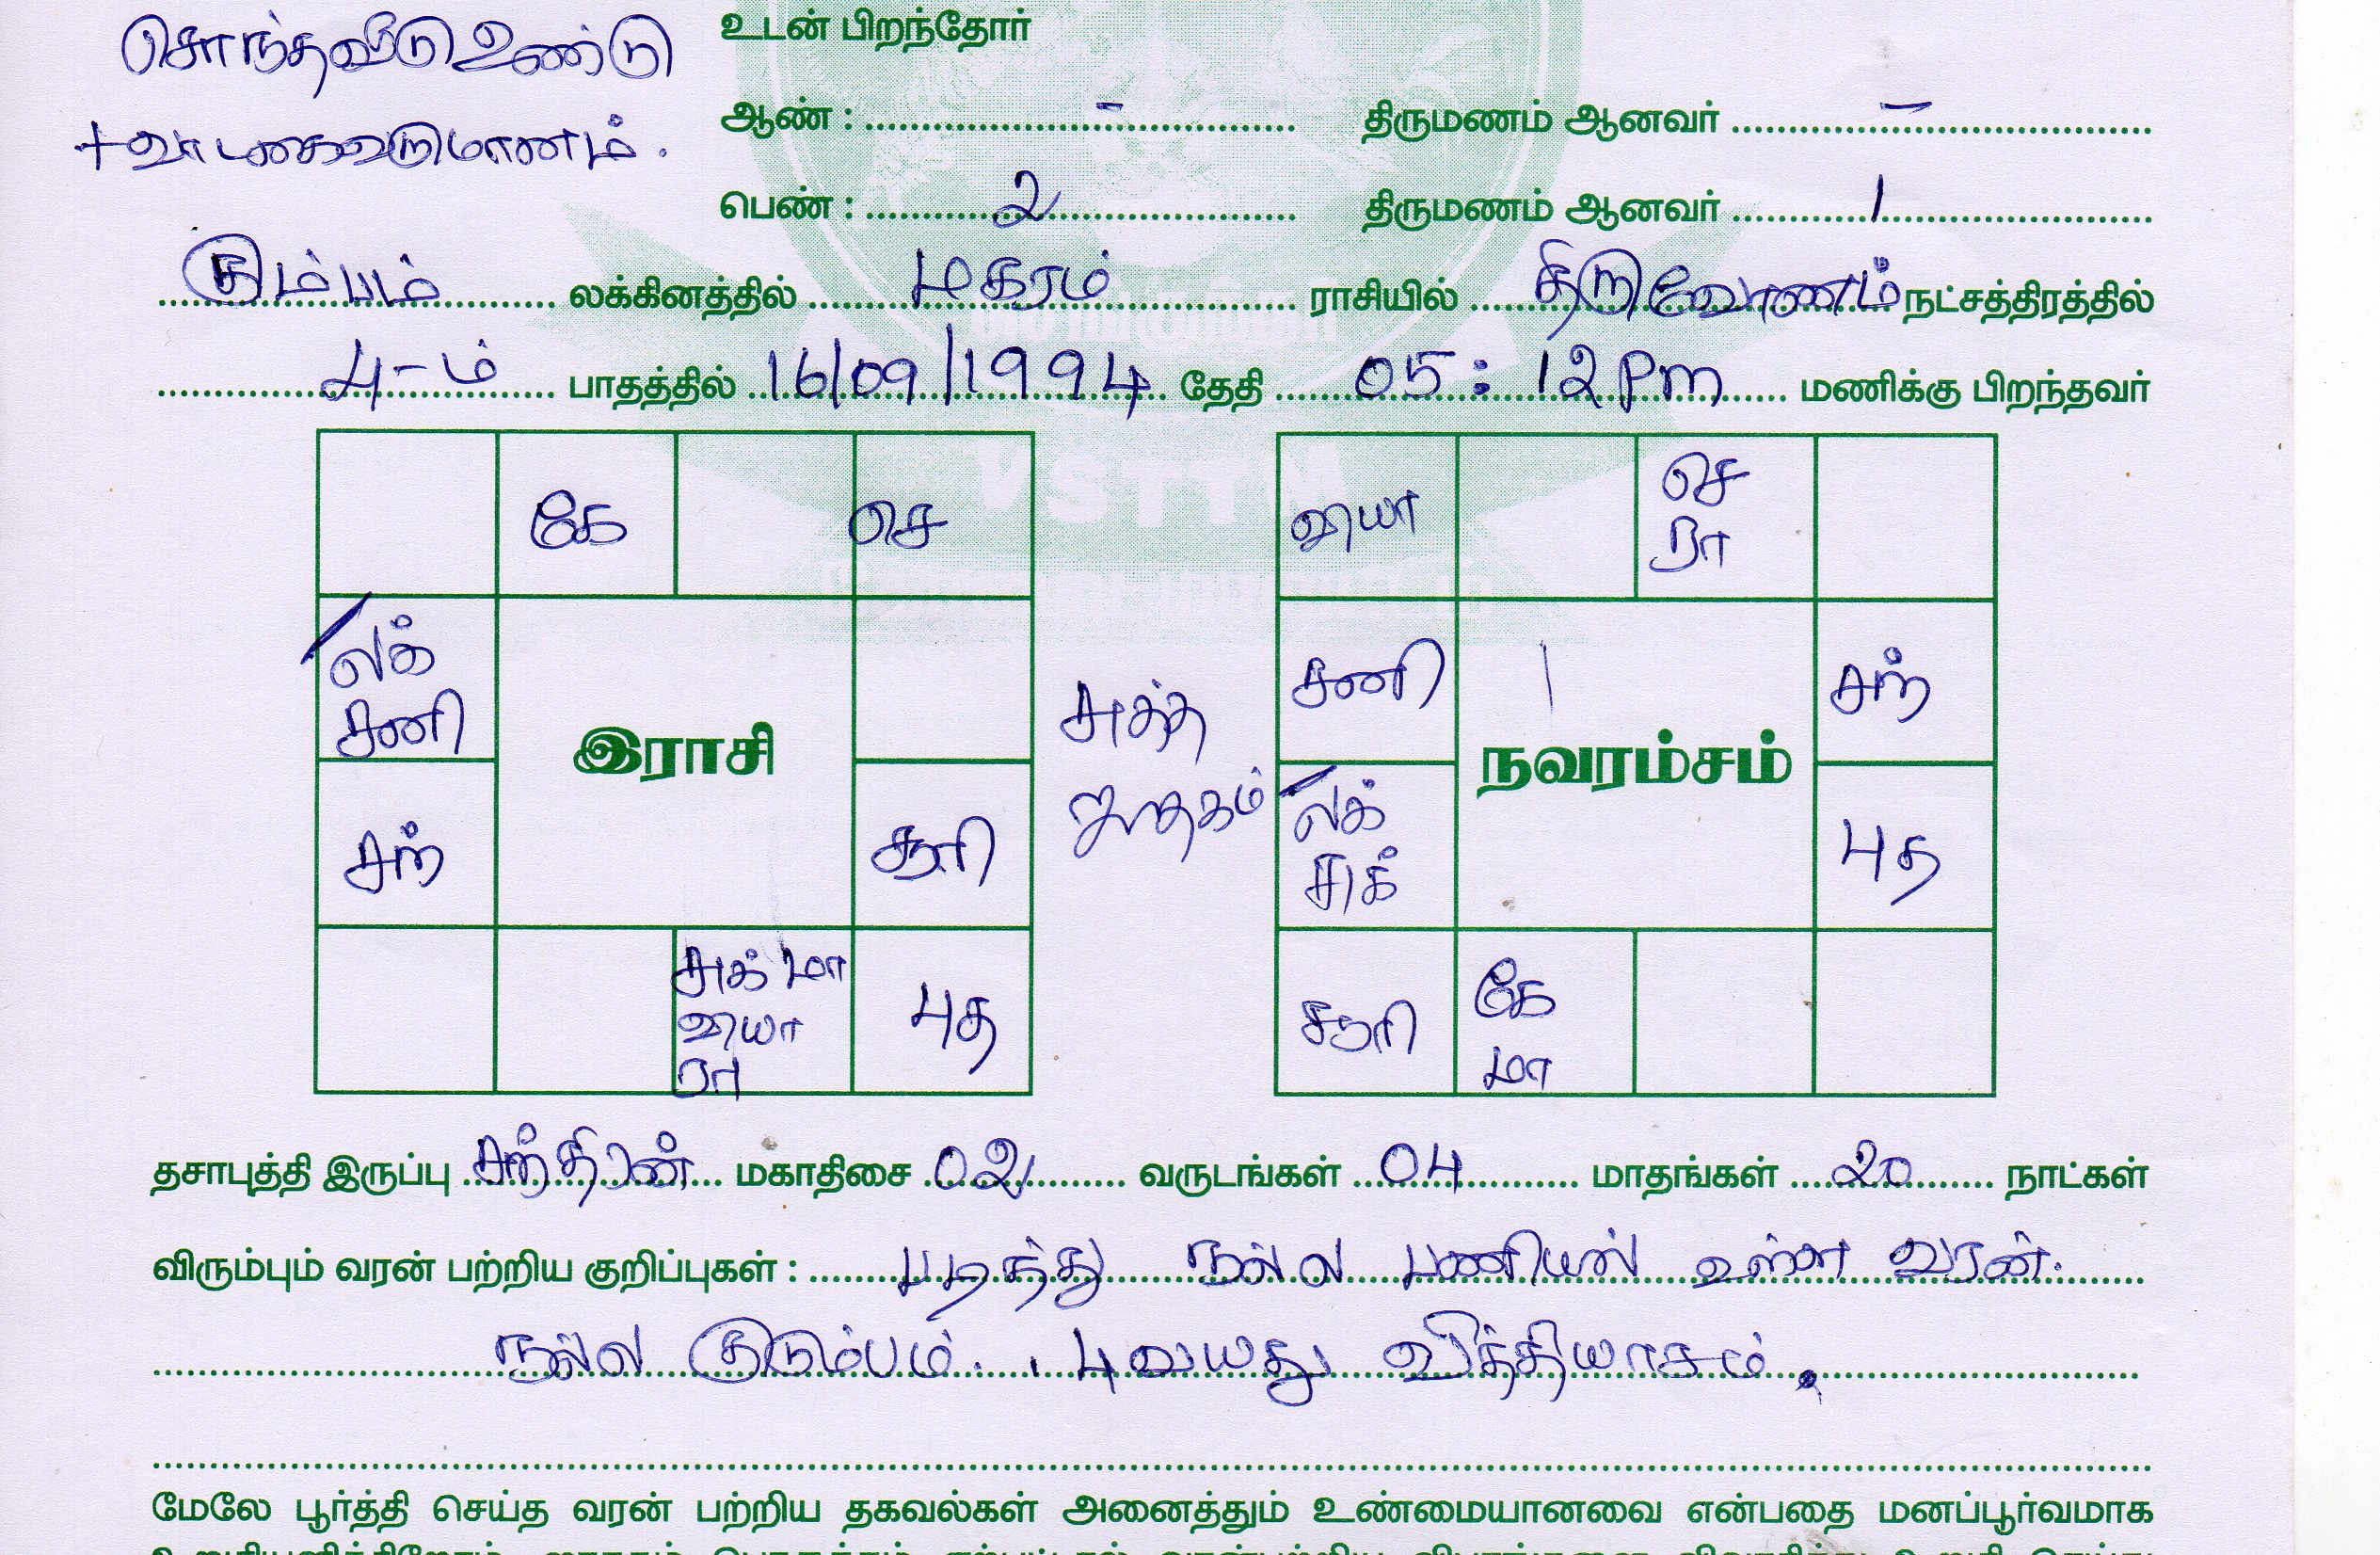 சொந்தவீடு உண்டு
+ வாடகை வருமானம்.
உடன் பிறந்தோர்
ஆண் : - திருமணம் ஆனவர் -
பெண் : 2 திருமணம் ஆனவர் 1
கும்பம் லக்கினத்தில் மகரம் ராசியில் திருவோணம் நட்சத்திரத்தில்
4-ம் பாதத்தில் 16/09/1994 தேதி 05:12 Pm மணிக்கு பிறந்தவர்
கே செ
லக்
சனி
இராசி
சந் சூரி
சுக் மா
வியா
ரா
புத
சுத்த
ஜாதகம்
வியா செ
ரா
சனி சந்
நவரம்சம்
லக்
சுக்
புத
சூரி கே
மா
தசாபுத்தி இருப்பு சந்திரன் மகாதிசை 02 வருடங்கள் 04 மாதங்கள் 20 நாட்கள்
விரும்பும் வரன் பற்றிய குறிப்புகள் : படித்து நல்ல பணியில் உள்ள வரன்.
நல்ல குடும்பம். 4 வயது வித்தியாசம்.
மேலே பூர்த்தி செய்த வரன் பற்றிய தகவல்கள் அனைத்தும் உண்மையானவை என்பதை மனப்பூர்வமாக